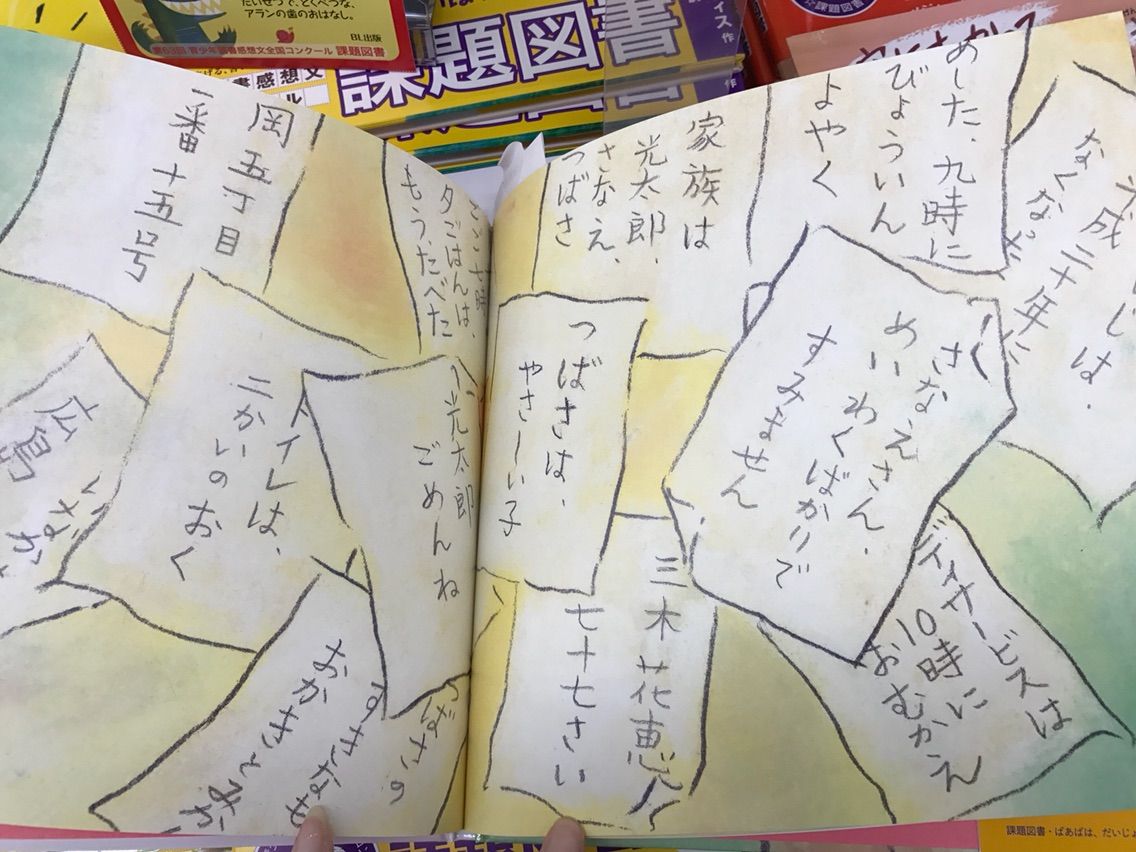 だいせつで、とくべつな、
アランの歯のおはなし。
BL出版
第63回 青少年読書感想文全国コンクール 課題図書
課題図書
ィス 作
☆課題図書
あした、九時に
びょういん
よやく
家族は
光太郎、
さなえ、
つばさ
なくなった
平成二十年に
さなえさん、
めいわくばかりで
すみません
デイサービスは
10時に
おむかえ
つばさは、
やさしーい子
三木花恵
七十七さい
岡五丁目
一番十五号
夕ごはんは、
もう、たべた
光太郎へ
ごめんね
トイレは、
二かいのおく
広島
いなか
つばさの
すきなも
おかき
課題図書・ばあばは、だいじょ